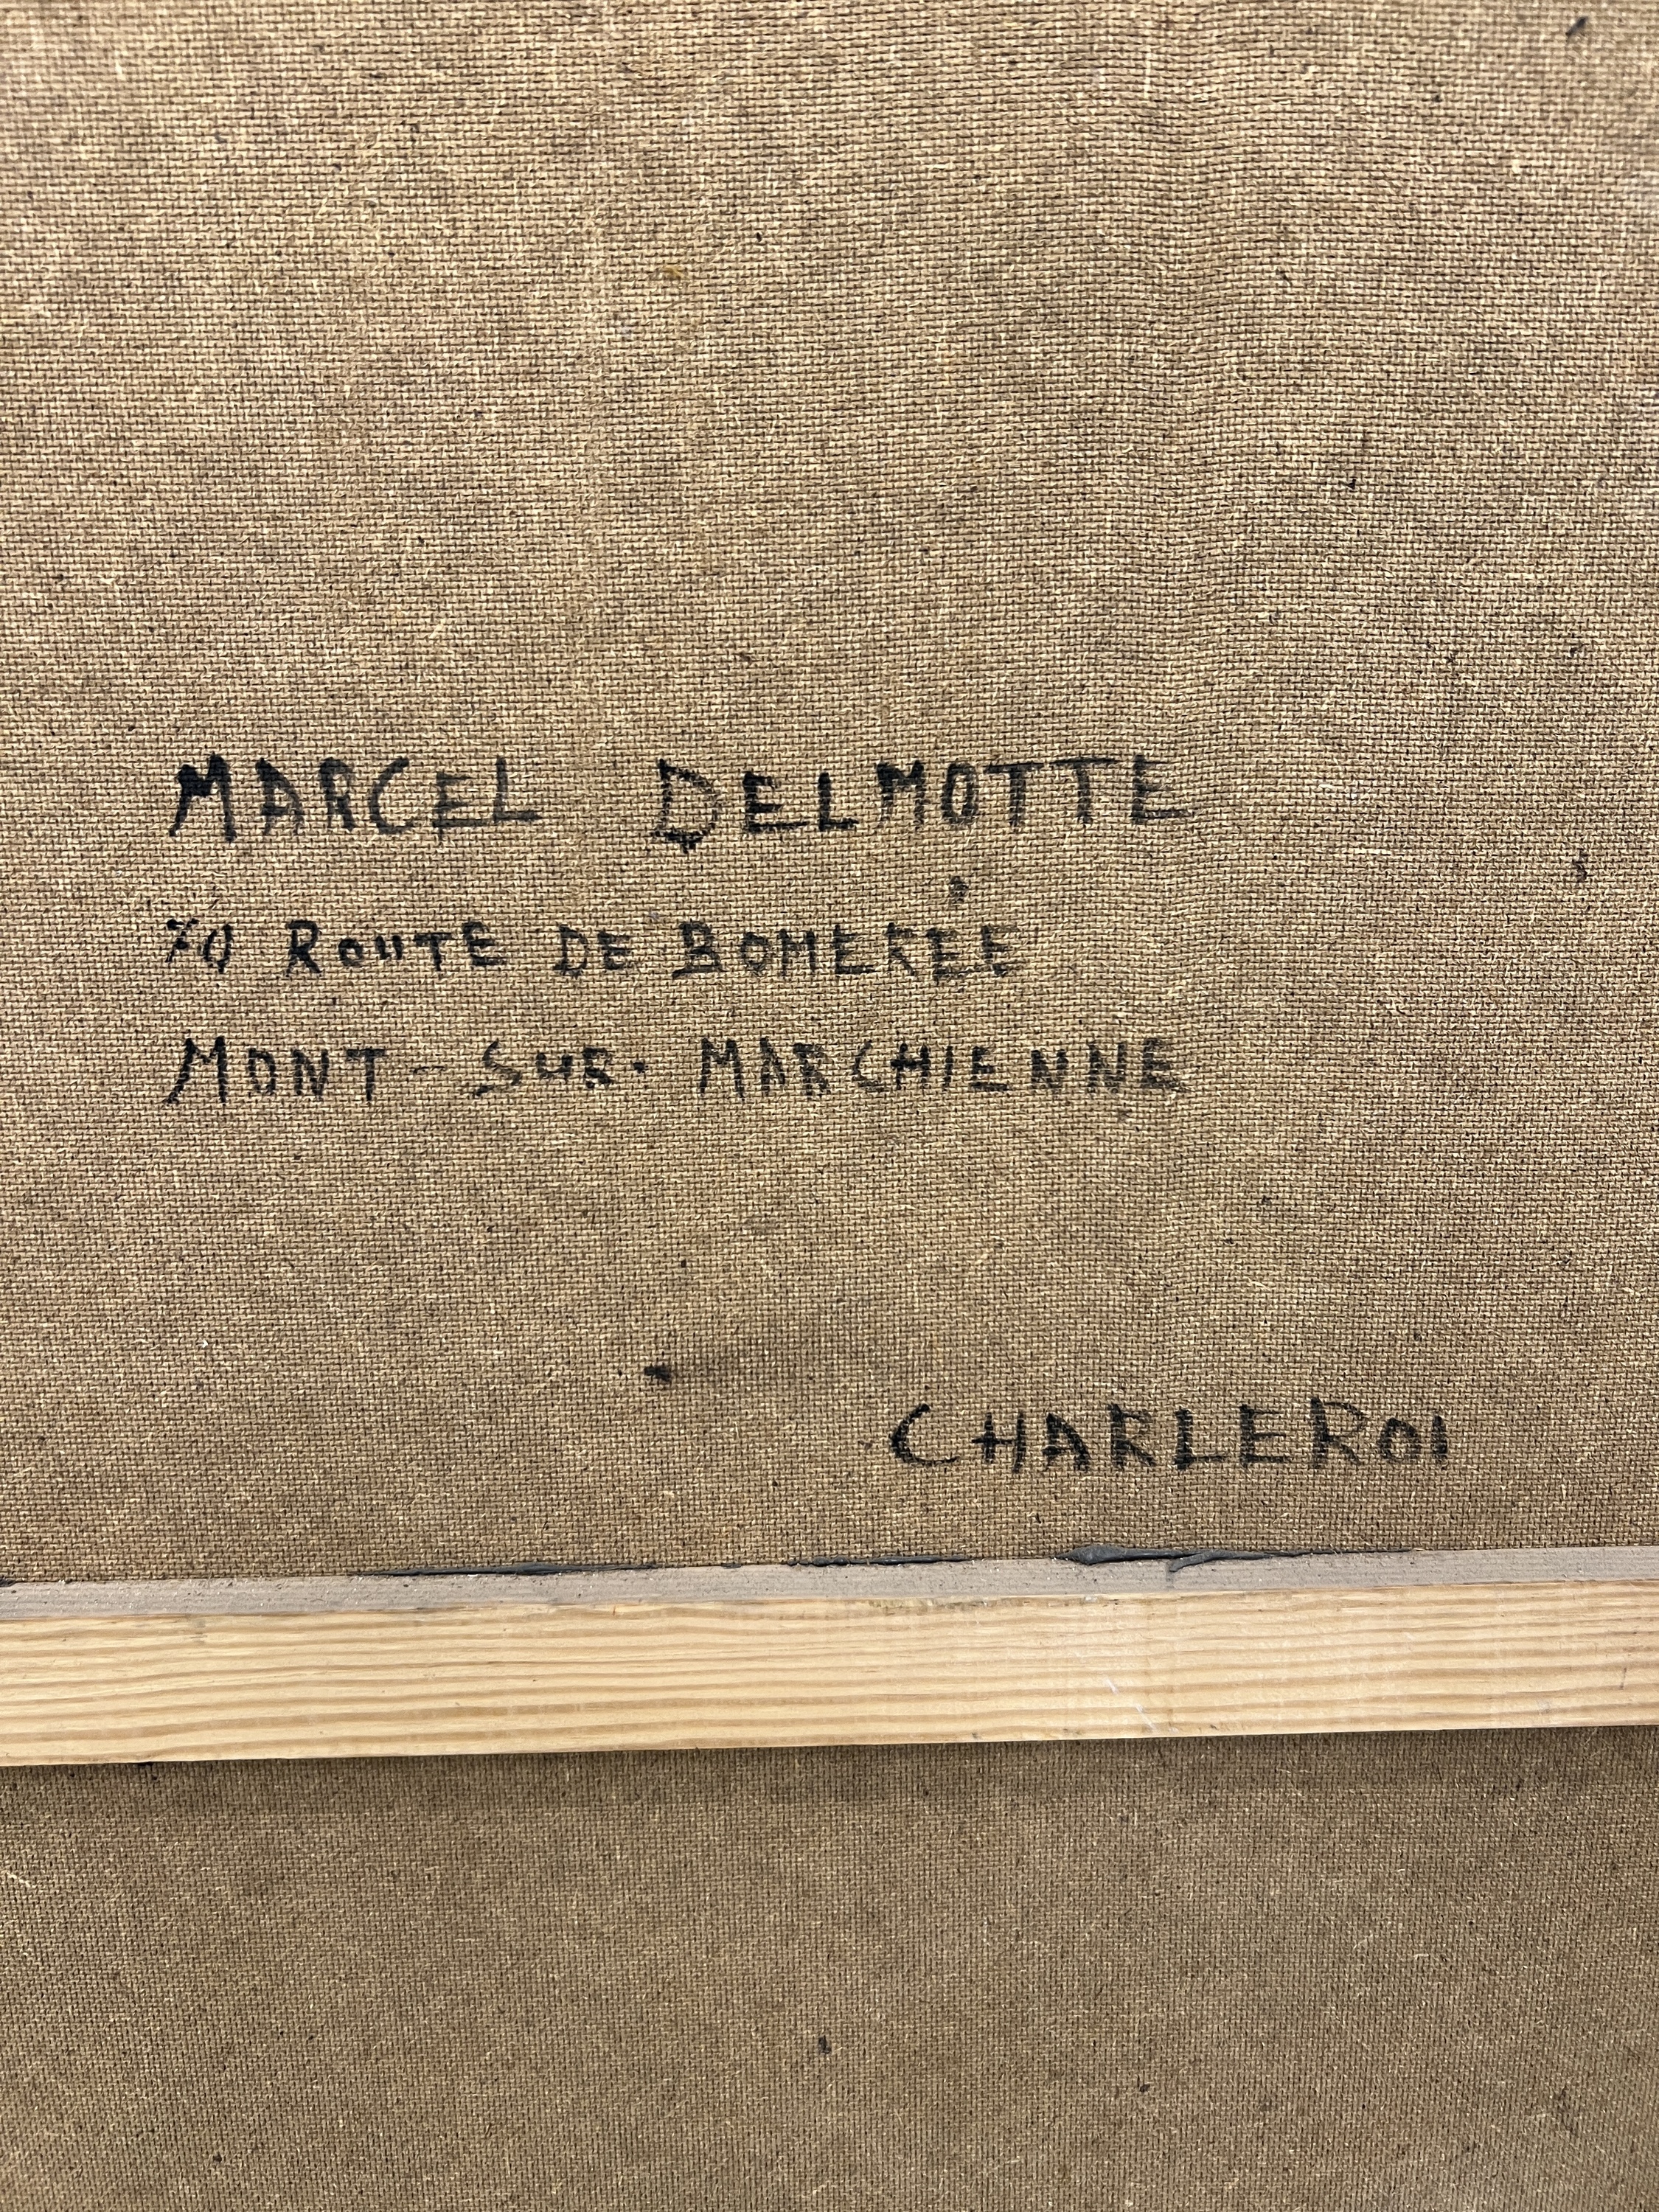 MARCEL DELMOTTE
70 ROUTE DE BOMERÉE
MONT-SUR-MARCHIENNE
CHARLEROI